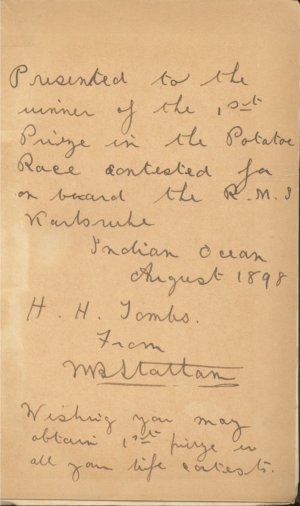 Presented to the
winner of the 1st
Prize in the Potatoe
Race contested for
on board the R. M. S
Karlsruhe
Indian Ocean
August 1898
H. H. Tombs.
From
Wishing you may
obtain 1st prize in
all your life contests.